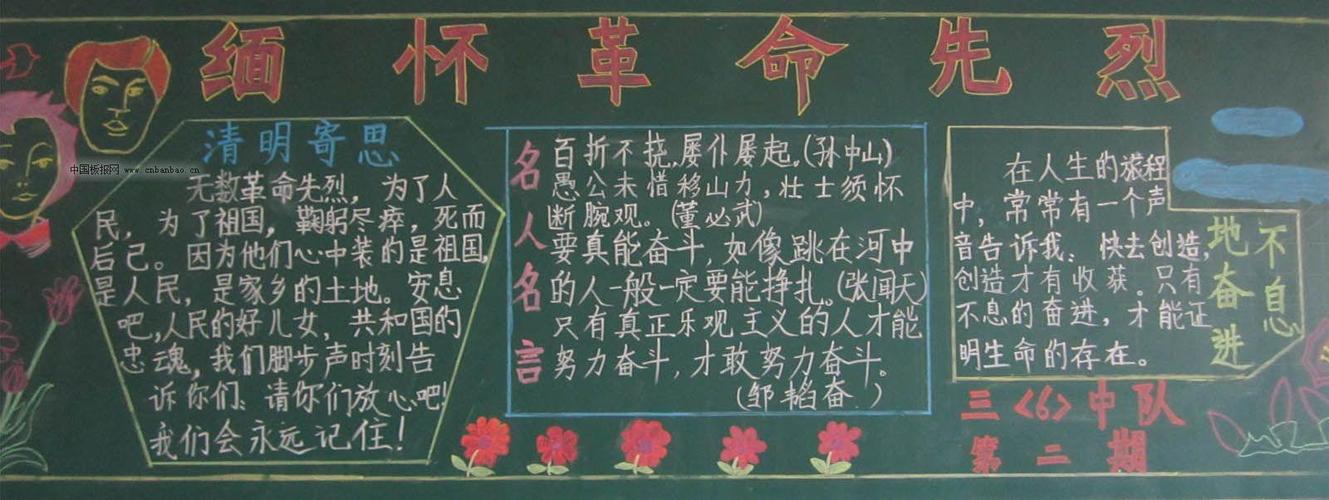 缅怀革命先烈
清明寄思
中国板报网
www.cnbanbao.cn
无数革命先烈，为了人
民，为了祖国，鞠躬尽瘁，死而
后己。因为他们心中装的是祖国，
是人民，是家乡的土地。安息
吧，人民的好儿女，共和国的
忠魂，我们脚步声时刻告
诉你们：请你们放心吧！
我们会永远记住！
名人名言
百折不挠，屡仆屡起。(孙中山)
愚公未惜移山力，壮士须怀
断腕观。(董必武)
要真能奋斗，如像跳在河中
的人一般一定要能挣扎。(张闻天)
只有真正乐观主义的人才能
努力奋斗，才敢努力奋斗。
(邹韬奋)
在人生的旅程
中，常常有一个声
音告诉我：快去创造，
创造才有收获。只有
不息的奋进，才能证
明生命的存在。
不息
地奋进
三<6>中队
第二期